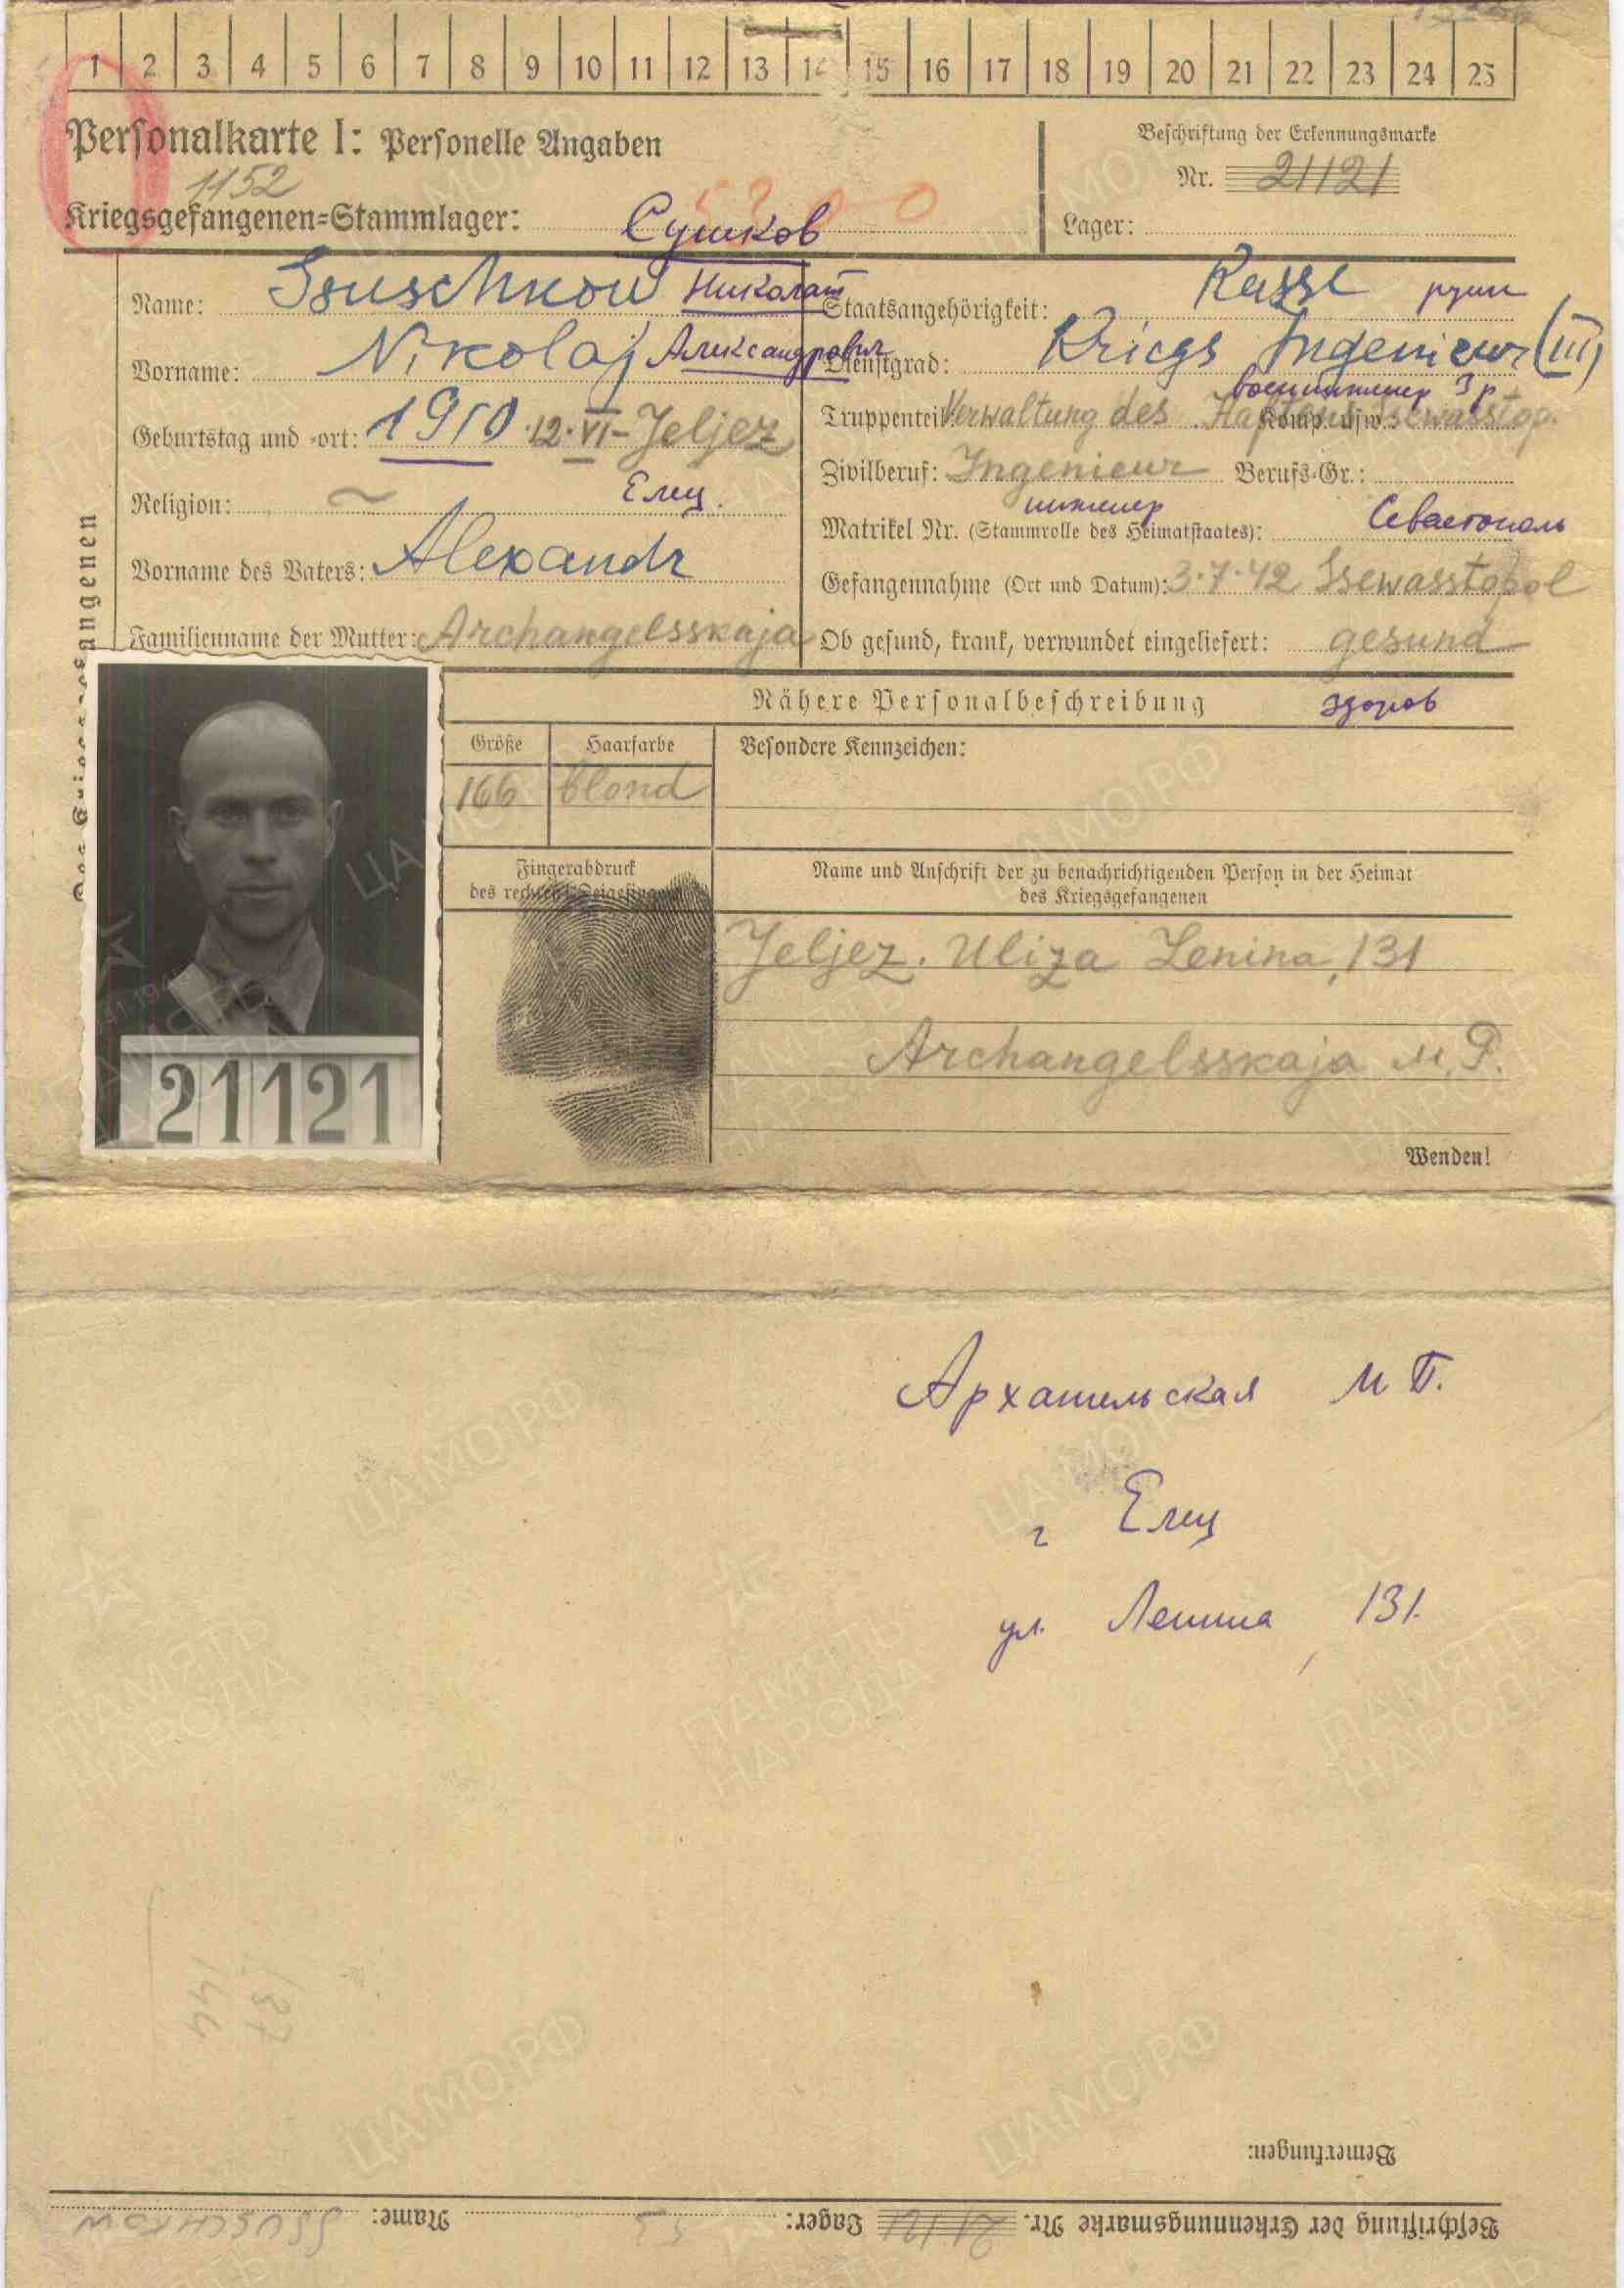 1 2 3 4 5 6 7 8 9 10 11 12 13 14 15 16 17 18 19 20 21 22 23 24 25
Personalkarte I: Personelle Angaben
Beschriftung der Erkennungsmarke
1152
Nr. 21121
Kriegsgefangenen=Stammlager: Сушков
Lager:
Name: Ssuschkow Николай
Staatsangehörigkeit: Russe русск
Vorname: Nikolaj Александрович
Dienstgrad: Kriegs Ingenieur (III)
военинженер 3 р
Geburtstag und -ort: 1910. 12. VI - Jeljez
Truppenteil: Verwaltung des Hafens Ssewasstop.
Komp. usw.:
Zivilberuf: Ingenieur Berufs-Gr.:
Religion: Елец.
инженер
Matrikel Nr. (Stammrolle des Heimatstaates): Севастополь
Vorname des Vaters: Alexandr
Gefangennahme (Ort und Datum): 3.7.42 Ssewasstopol
Familienname der Mutter: Archangelsskaja
Ob gesund, krank, verwundet eingeliefert: gesund
Des Kriegsgefangenen
Nähere Personalbeschreibung здоров
Größe Haarfarbe Besondere Kennzeichen:
166 blond
Fingerabdruck
des rechten Zeigefingers
Name und Anschrift der zu benachrichtigenden Person in der Heimat
des Kriegsgefangenen
Jeljez. Uliza Lenina, 131
Archangelsskaja M. P.
21121
Wenden!
Архангельская М П.
г Елец
ул. Ленина, 131.
137
144
Bemerkungen:
Beschriftung der Erkennungsmarke Nr. 21121 Lager: Name: SSUSCHKOW
ЦАМО.РФ
ПАМЯТЬ
НАРОДА